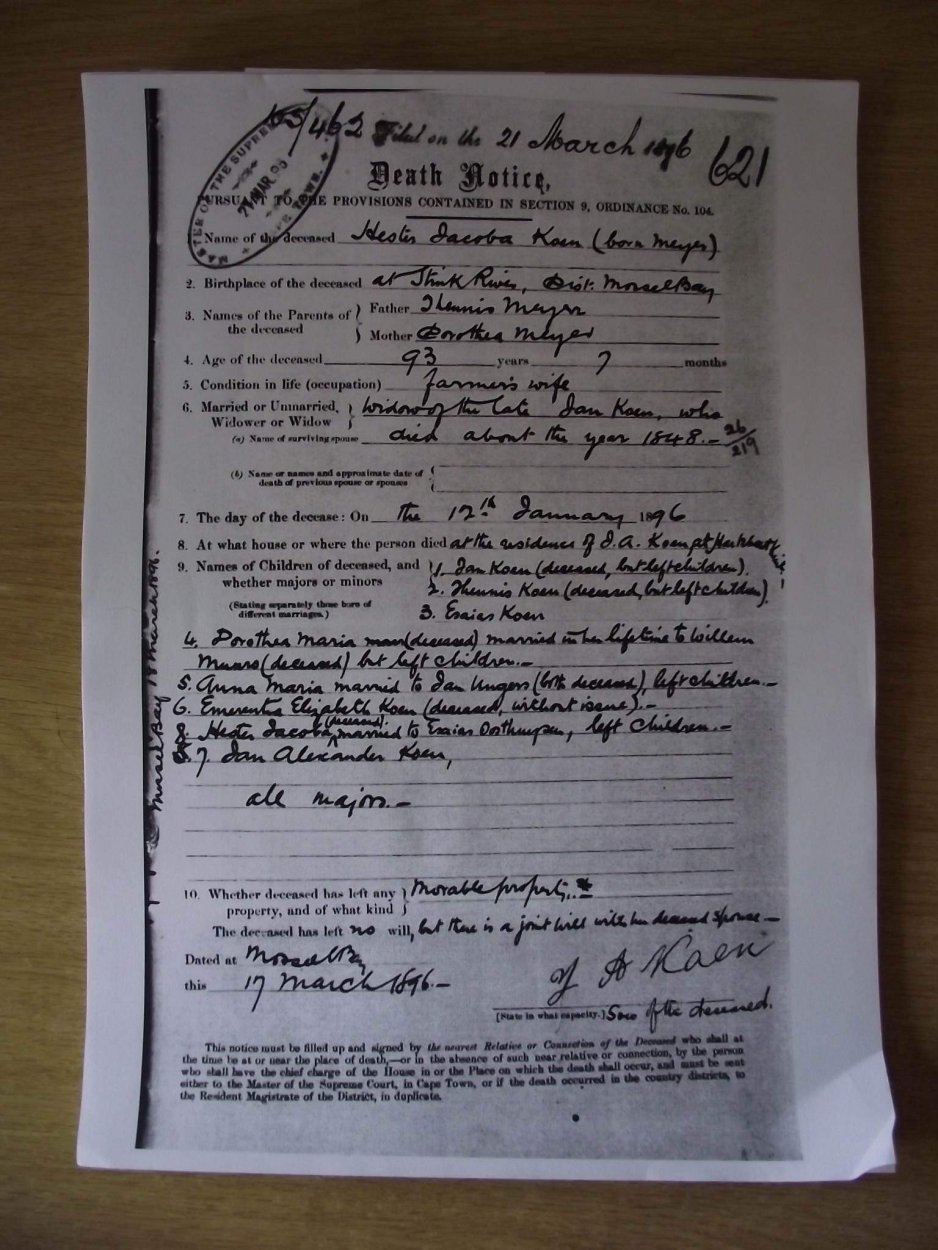 65/462 Filed on the 21 March 1896 621
MASTER OF THE SUPREME
21 MAR 96
TOWN.
Death Notice,
PURSUANT TO THE PROVISIONS CONTAINED IN SECTION 9, ORDINANCE No. 104.
Name of the deceased Hester Jacoba Koen (born Meyer)
2. Birthplace of the deceased at Stink River, Dist. Mossel Bay
3. Names of the Parents of the deceased Father Theunis Meyer
Mother Dorothea Meyer
4. Age of the deceased 93 years 7 months
5. Condition in life (occupation) farmer's wife
6. Married or Unmarried, Widower or Widow Widow of the late Jan Koen, who
(a) Name of surviving spouse died about the year 1848.- 26/219
(b) Name or names and approximate date of
death of previous spouse or spouses
7. The day of the decease: On the 12th January 1896
8. At what house or where the person died at the residence of J. A. Koen at
9. Names of Children of deceased, and 1. Jan Koen (deceased, but left children).
whether majors or minors 2. Theunis Koen (deceased, but left children)
(Stating separately those born of
different marriages.) 3. Esaias Koen
4. Dorothea Maria (deceased) married in her lifetime to Willem
Munro (deceased) but left children.-
5. Anna Maria married to Jan (both deceased), left children.-
6. Emerentia Elizabeth Koen (deceased, without issue).-
8. Hester Jacoba (deceased) married to Esaias Oosthuysen, left children.-
7. Jan Alexander Koen,
all majors.-
10. Whether deceased has left any Movable property.
property, and of what kind
The deceased has left no will, but there is a joint will with her deceased spouse-
Dated at Mossel Bay
this 17 March 1896.- J A Koen
[State in what capacity.] Son of the deceased.
This notice must be filled up and signed by the nearest Relative or Connection of the Deceased who shall at
the time be at or near the place of death,—or in the absence of such near relative or connection, by the person
who shall have the chief charge of the House in or the Place on which the death shall occur, and must be sent
either to the Master of the Supreme Court, in Cape Town, or if the death occurred in the country districts, to
the Resident Magistrate of the District, in duplicate.
Mossel Bay 18 March 1896.